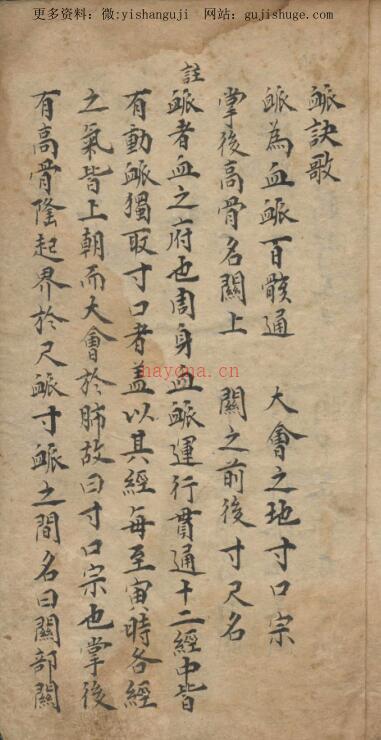 更多资料：微:yishanguji　网站：gujishuge.com
脈訣歌
脈為血脈百骸通　大會之地寸口宗
掌後高骨名關上　關之前後寸尺名
註
脈者血之府也周身血脈運行貫通十二經中皆
有動脈獨取寸口者盖以其經每至寅時各經
之氣皆上朝而大會於肺故曰寸口宗也掌後
有高骨隆起界於尺脈寸脈之間名曰關部關
haydna.cn